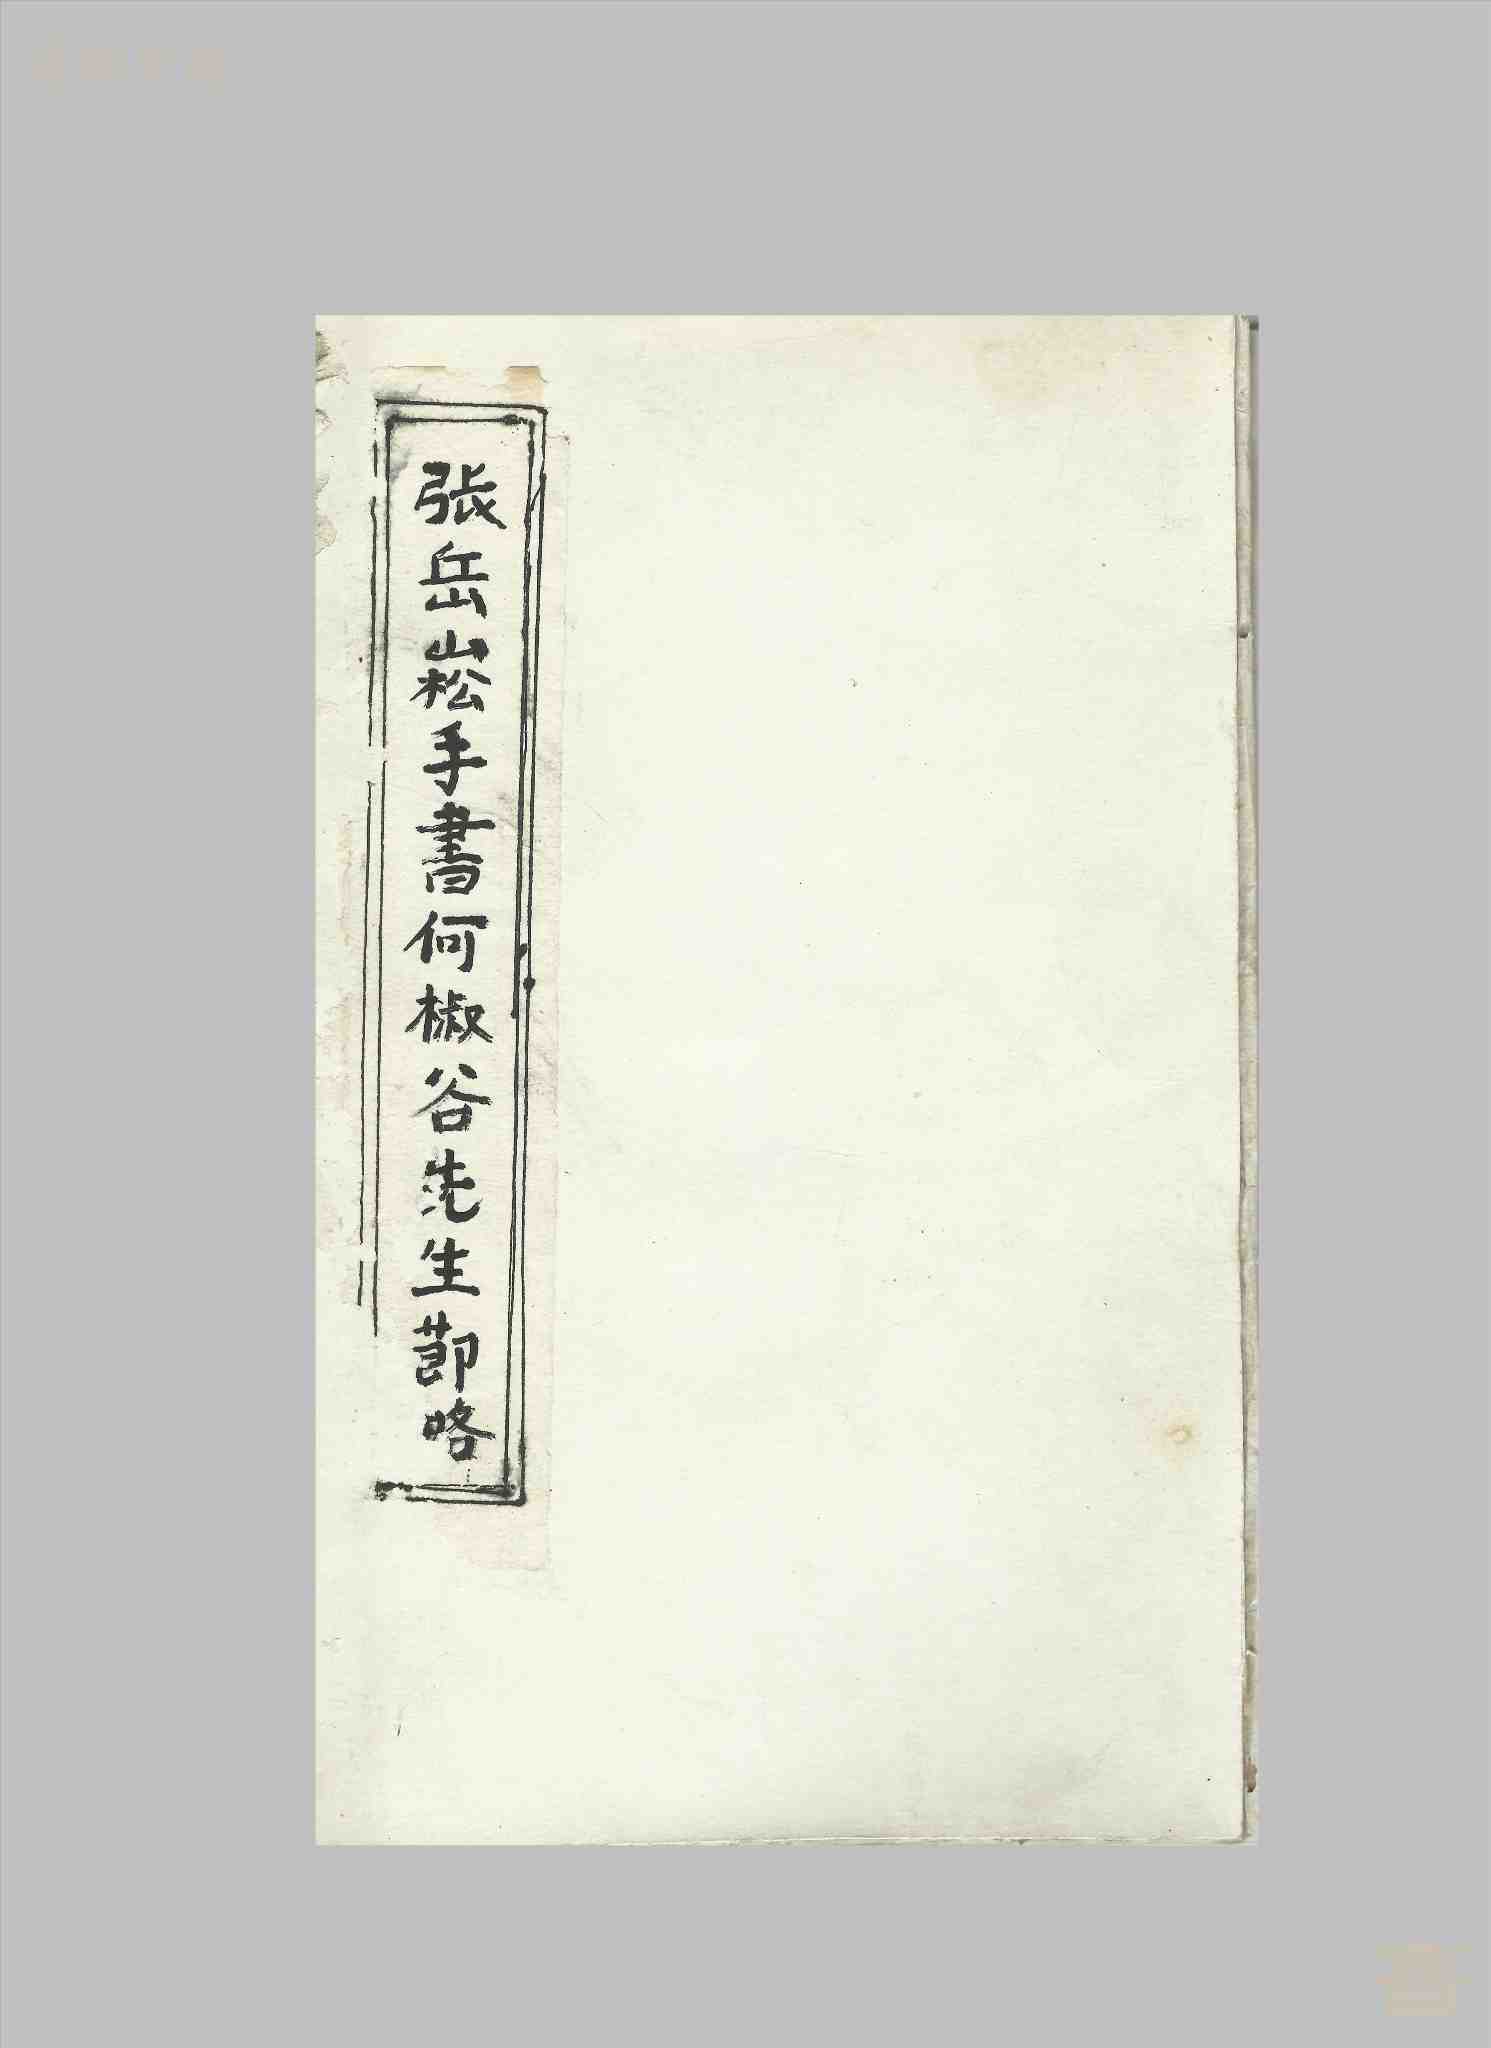 張岳崧手書何椒谷先生莭略